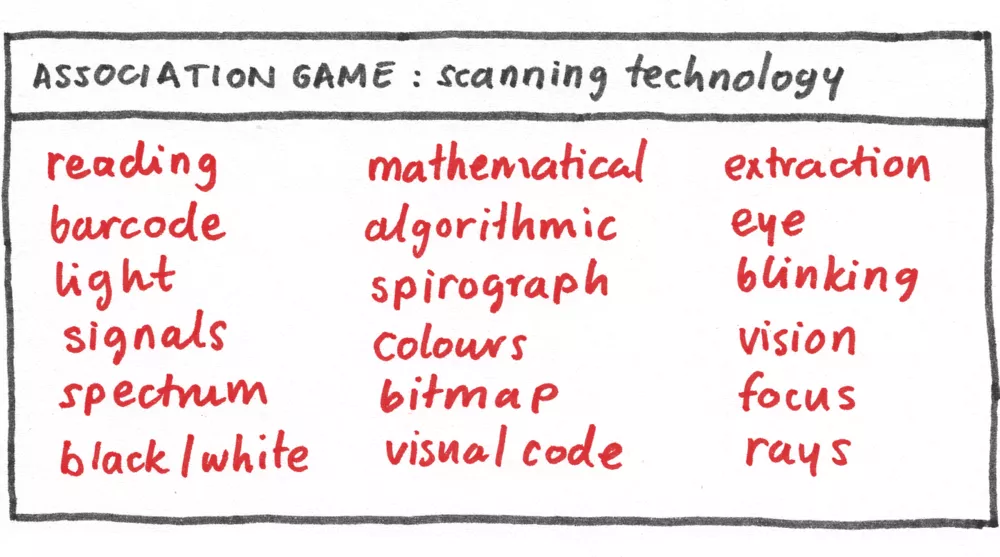 ASSOCIATION GAME : scanning technology
reading
barcode
light
signals
spectrum
black/white
mathematical
algorithmic
spirograph
colours
bitmap
visual code
extraction
eye
blinking
vision
focus
rays